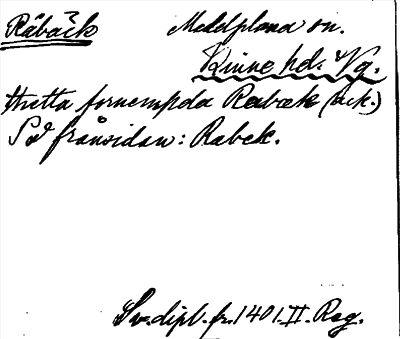 Råbäck Medelplana sn.
Kinne hd. Vg.
thetta fornempda Rabæk (ack.)
På frånsidan: Rabek.
Sv. dipl. fr. 1401. II. Reg.